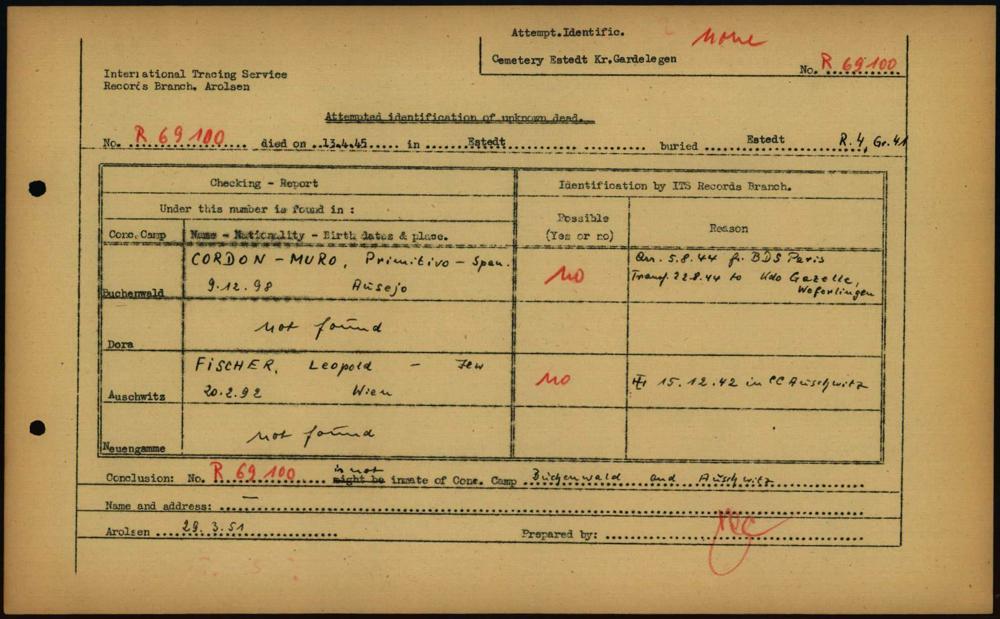 Attempt.Identific. None
Cemetery Estedt Kr.Gardelegen
No. R 69100
International Tracing Service
Records Branch, Arolsen
Attempted identification of unknown dead.
No. R 69 100 died on 13.4.45 in Estedt buried Estedt R.4, Gr.41
Checking - Report
Identification by ITS Records Branch.
Under this number is found in :
Possible
(Yes or no)
Reason
Conc.Camp
Name - Nationality - Birth dates & place.
Buchenwald
CORDON - MURO, Primitivo - Span.
9.12.98 Ausejo
no
Arr. 5.8.44 fr. BDS Paris
Transf. 22.8.44 to Kdo Gazelle,
Weferlingen
Dora
not found
Auschwitz
FISCHER, Leopold - Jew
20.2.92 Wien
no
15.12.42 in CC Auschwitz
Neuengamme
not found
Conclusion: No. R 69 100 is not might be inmate of Conc. Camp Buchenwald and Auschwitz
Name and address: —
Arolsen 29.3.51 Prepared by: